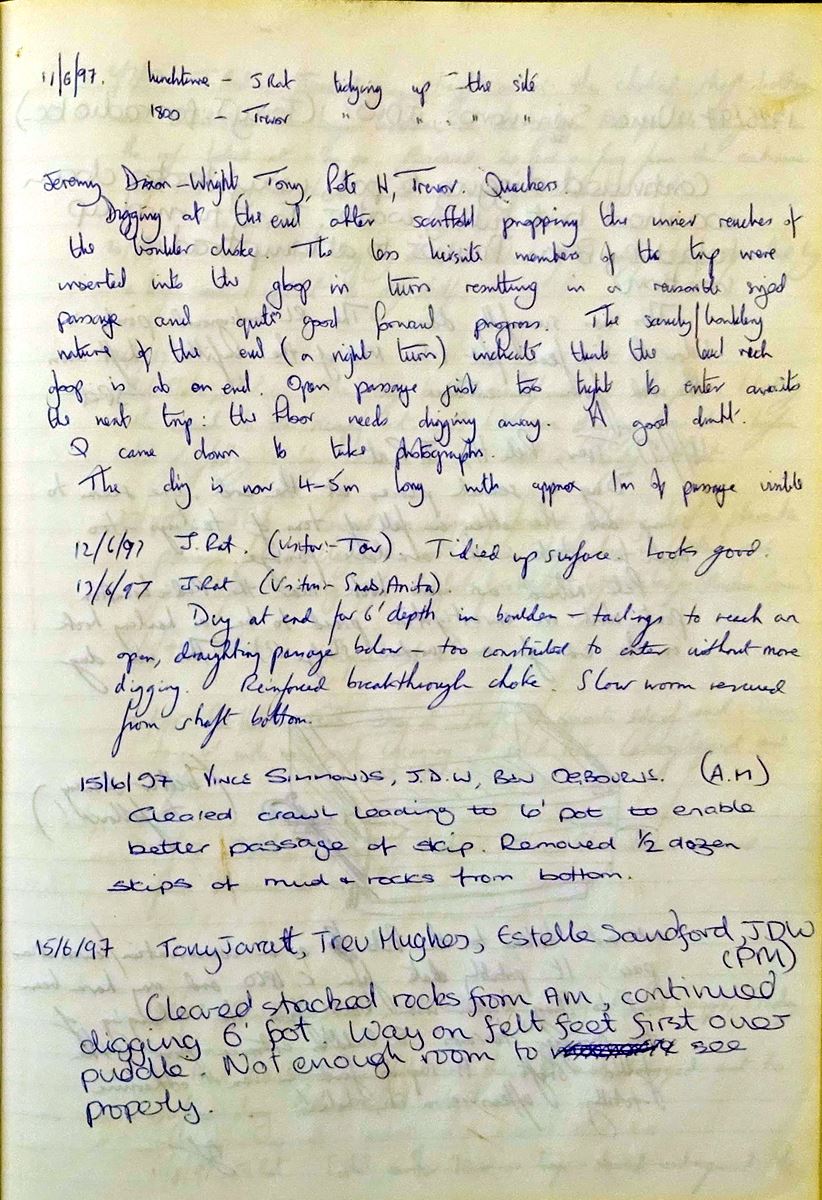 11/6/97. lunchtime - J.Rat tidying up the site
1800 - Trevor " " " "
Jeremy Dixon-Wright Tony, Pete H, Trevor. Quackers.
Digging at the end after scaffold propping the inner reaches of
the boulder choke. The less hirsute members of the trip were
inserted into the gloop in turn resulting in a reasonable sized
passage and quite good forward progress. The sandy/bouldery
nature of the end (a right turn) indicate that the lead rich
gloop is at an end. Open passage just too tight to enter awaits
the next trip: the floor needs digging away. A good draht.
Q came down to take photographs.
The dig is now 4-5m long with approx 1m of passage visible
12/6/97 J.Rat. (Visitor:- Tav). Tidied up surface. Looks good.
13/6/97 J.Rat (Visitors:- Snab, Anita).
Dug at end for 6' depth in boulders - tailings to reach an
open, draughting passage below - too constricted to enter without more
digging. Reinforced breakthrough choke. Slow worm rescued
from shaft bottom.
15/6/97 VINCE SIMMONDS, J.D.W, BEN OGBOURNE. (A.M)
Cleared crawl leading to 6' pot to enable
better passage of skip. Removed 1/2 dozen
skips of mud & rocks from bottom.
15/6/97 Tony Jaratt, Trev Hughes, Estelle Sandford, JDW
(PM)
Cleared stacked rocks from AM, continued
digging 6' pot. Way on felt feet first over
puddle. Not enough room to see
properly.